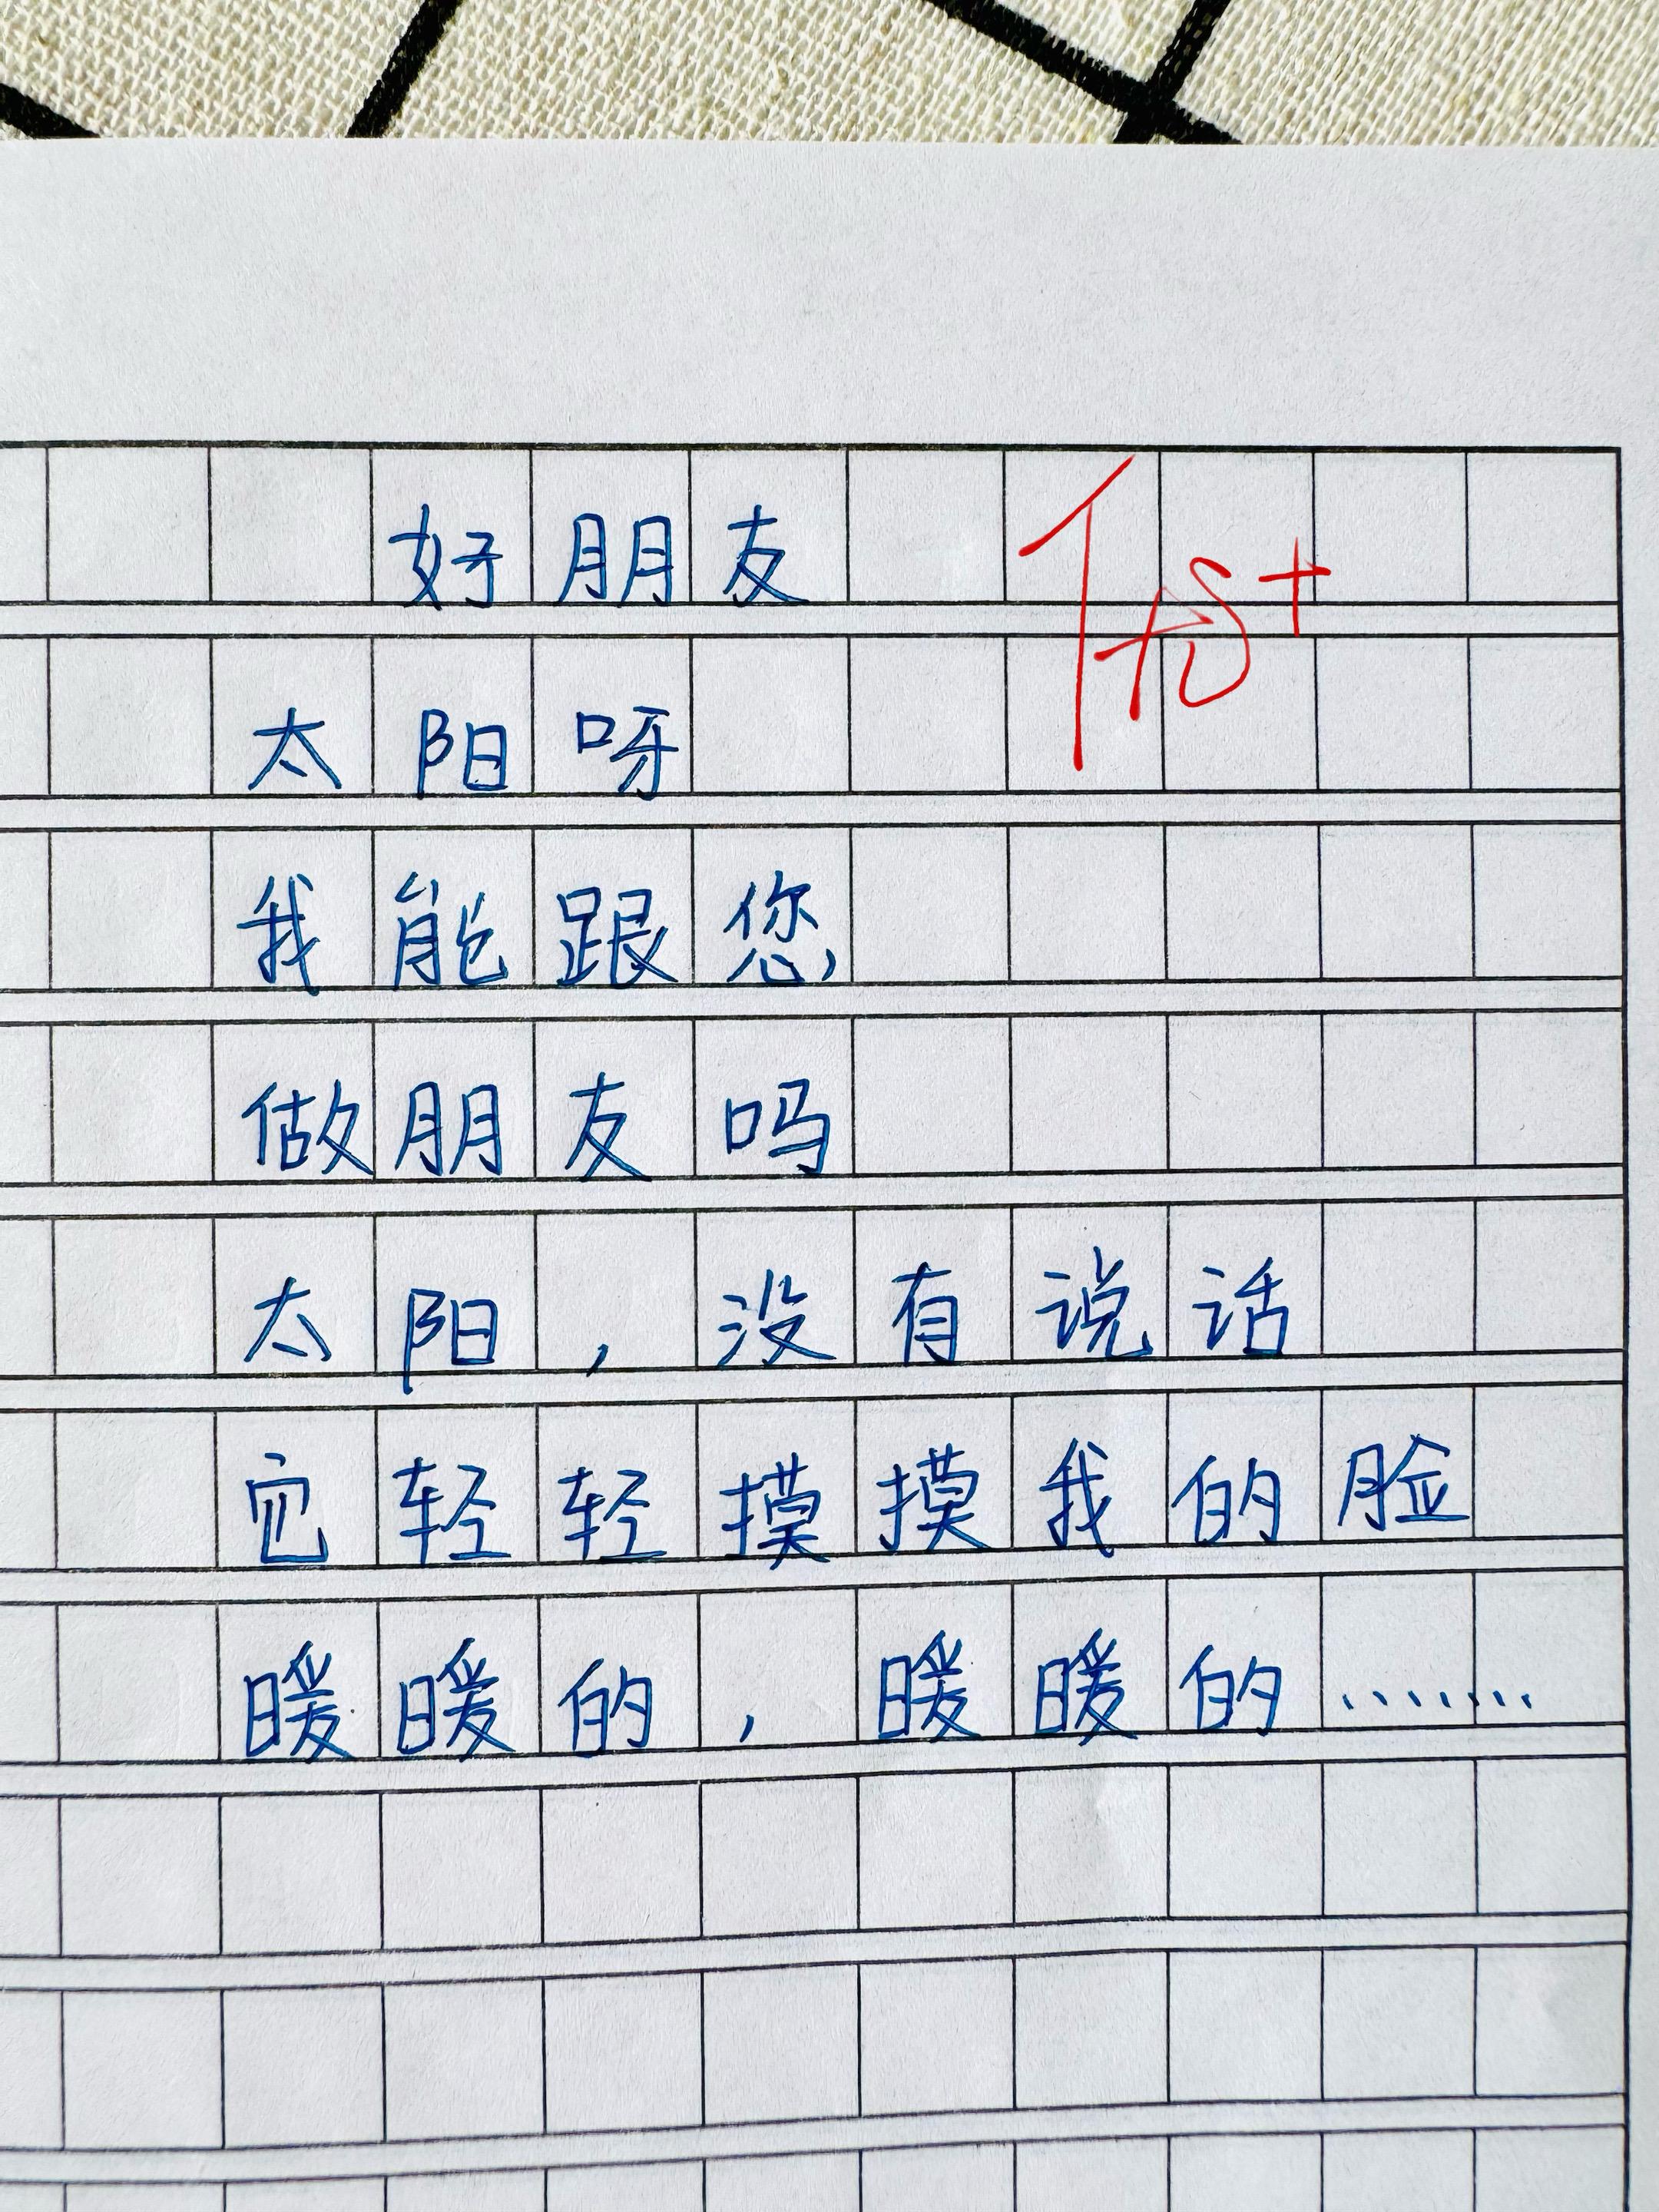 好朋友
优+
太阳呀
我能跟您
做朋友吗
太阳，没有说话
它轻轻摸摸我的脸
暖暖的，暖暖的……